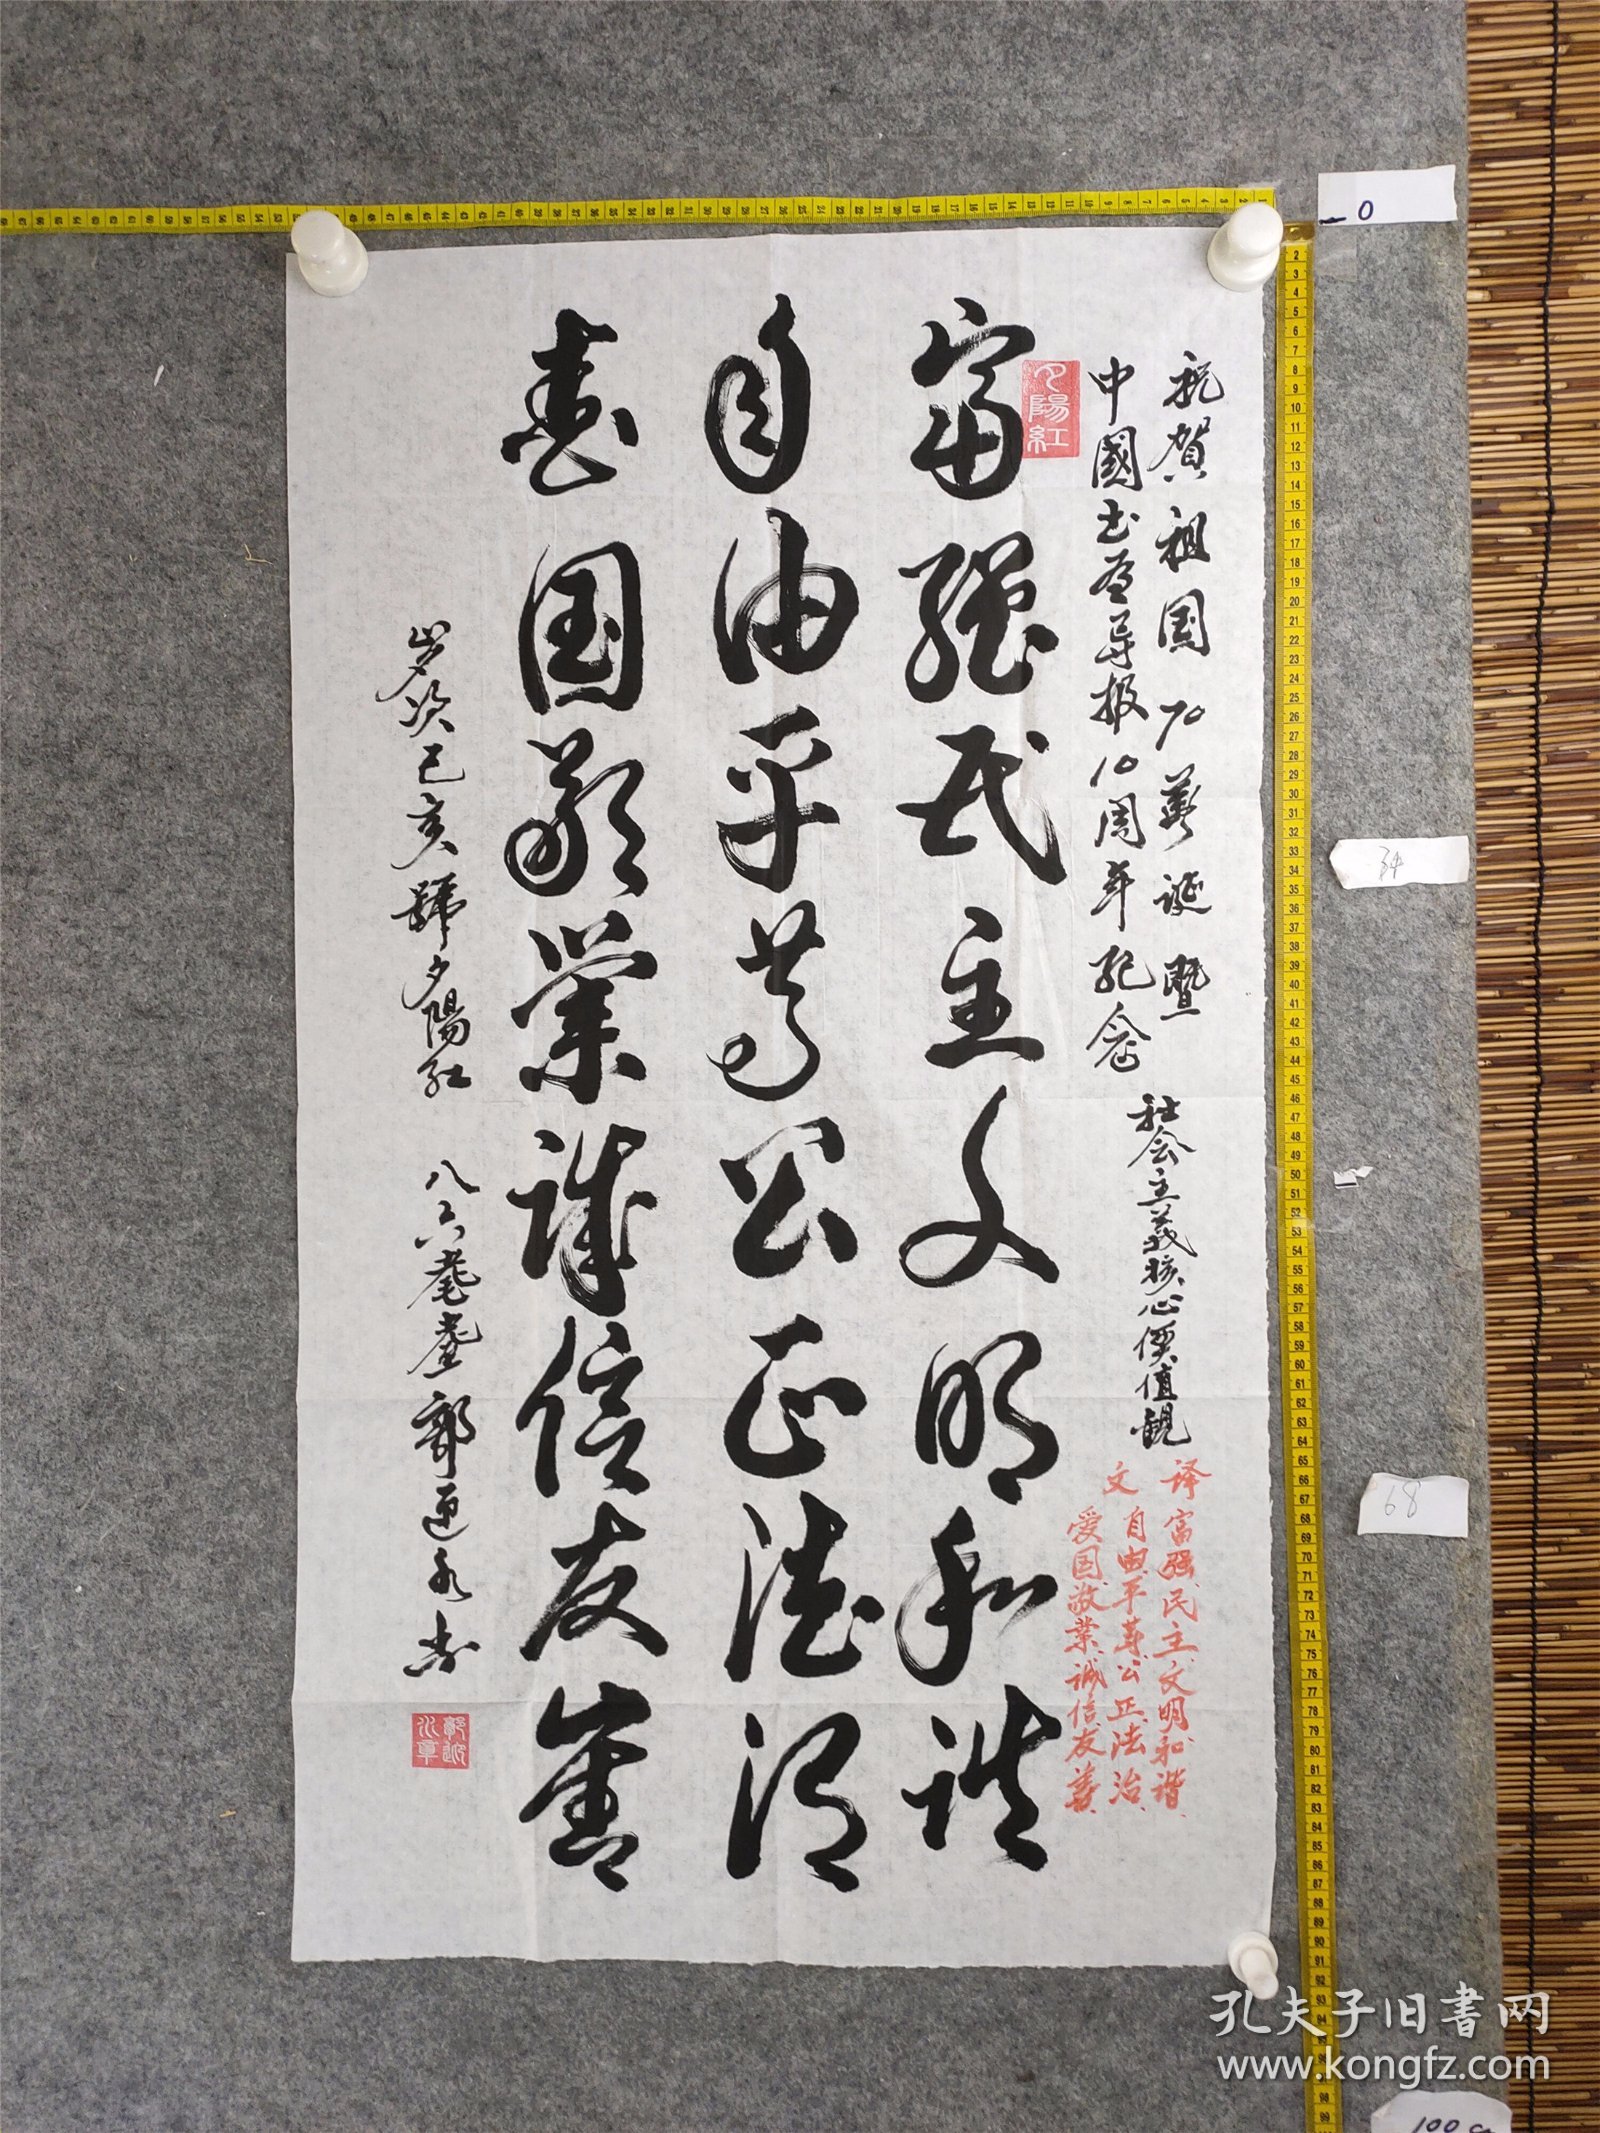 祝賀祖国70華誕暨
中國书画导报10周年纪念
社会主義核心價值觀
译文
富强民主文明和谐
自由平等公正法治
爱国敬業诚信友善
夕陽紅
富强民主文明和谐
自由平等公正法治
爱国敬業诚信友善
岁次己亥號夕陽红
八六耄耋郭迎永书
0
34
68
100c
孔夫子旧書网
www.kongfz.com